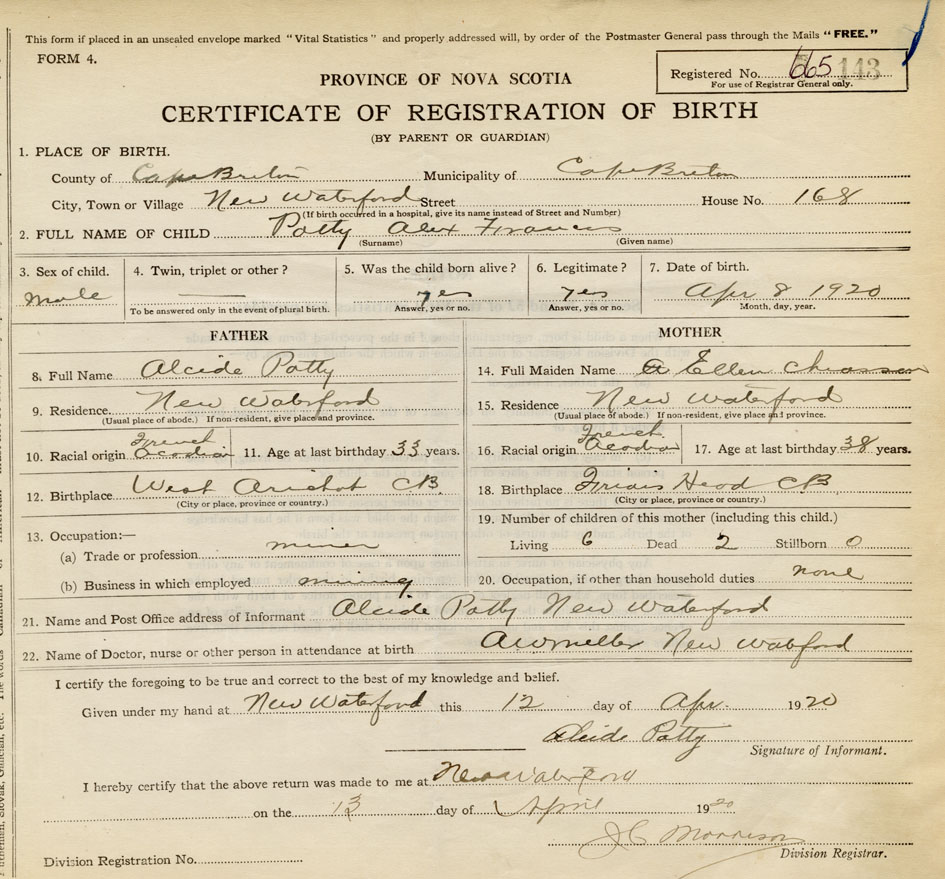 This form if placed in an unsealed envelope marked "Vital Statistics" and properly addressed will, by order of the Postmaster General pass through the Mails "FREE."
FORM 4.
PROVINCE OF NOVA SCOTIA
Registered No. 665 143
For use of Registrar General only.
CERTIFICATE OF REGISTRATION OF BIRTH
(BY PARENT OR GUARDIAN)
1. PLACE OF BIRTH.
County of Cape Breton Municipality of Cape Breton
City, Town or Village New Waterford Street House No. 168
(If birth occurred in a hospital, give its name instead of Street and Number)
2. FULL NAME OF CHILD Potty Alex Francis
(Surname) (Given name)
3. Sex of child. 4. Twin, triplet or other? 5. Was the child born alive? 6. Legitimate? 7. Date of birth.
Male yes yes Apr 8 1920
To be answered only in the event of plural birth. Answer, yes or no. Answer, yes or no. Month, day, year.
FATHER MOTHER
8. Full Name Alcide Potty 14. Full Maiden Name Ellen Chiasson
9. Residence New Waterford 15. Residence New Waterford
(Usual place of abode.) If non-resident, give place and province. (Usual place of abode.) If non-resident, give place and province.
10. Racial origin French Acadian 11. Age at last birthday 33 years. 16. Racial origin French Acadian 17. Age at last birthday 38 years.
12. Birthplace West Arichat CB. 18. Birthplace Friars Head CB
(City or place, province or country.) (City or place, province or country.)
13. Occupation:— 19. Number of children of this mother (including this child.)
(a) Trade or profession miner Living 6 Dead 2 Stillborn 0
(b) Business in which employed mining 20. Occupation, if other than household duties none
21. Name and Post Office address of Informant Alcide Potty New Waterford
22. Name of Doctor, nurse or other person in attendance at birth AW Miller New Waterford
I certify the foregoing to be true and correct to the best of my knowledge and belief.
Given under my hand at New Waterford this 12 day of Apr. 1920
Alcide Potty
Signature of Informant.
I hereby certify that the above return was made to me at New Waterford
on the 13 day of April 1920
J C Morrison
Division Registrar.
Division Registration No.